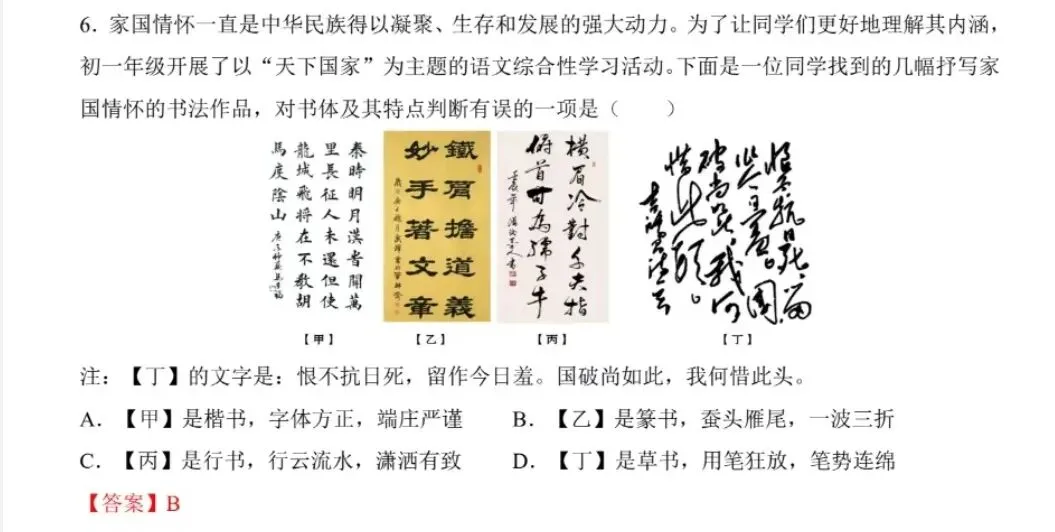 6．家国情怀一直是中华民族得以凝聚、生存和发展的强大动力。为了让同学们更好地理解其内涵，
初一年级开展了以“天下国家”为主题的语文综合性学习活动。下面是一位同学找到的几幅抒写家
国情怀的书法作品，对书体及其特点判断有误的一项是（　　）
秦時明月漢時關萬
里長征人未還但使
龍城飛將在不教胡
馬度陰山
鐵肩擔道義
妙手著文章
橫眉冷對千夫指
俯首甘為孺子牛
恨不抗日死，留
作今日羞。國
破尚如此，我何
惜此頭。
【甲】
【乙】
【丙】
【丁】
注：【丁】的文字是：恨不抗日死，留作今日羞。国破尚如此，我何惜此头。
A．【甲】是楷书，字体方正，端庄严谨
B．【乙】是篆书，蚕头雁尾，一波三折
C．【丙】是行书，行云流水，潇洒有致
D．【丁】是草书，用笔狂放，笔势连绵
【答案】B